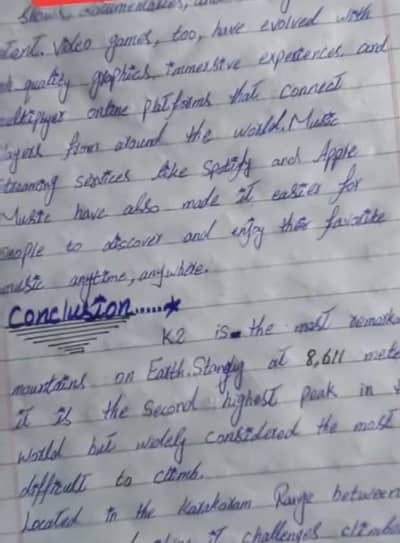 shows, documentaries, and
tent. Video games, too, have evolved with
quality graphics, immersive experiences, and
multiplayer online platforms that connect
layers from around the world. Music
streaming services like Spotify and Apple
Music have also made it easier for
people to discover and enjoy their favorite
music anytime, anywhere.
Conclusion......★
K2 is the most remarka
mountains on Earth. Standly at 8,611 mete
it is the second highest peak in
world but widely considered the most
difficult to climb.
Located in the Karakoram Range between
it challenges climbe